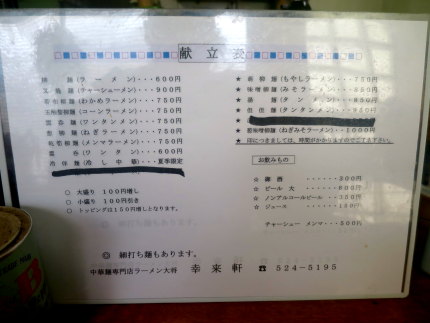 献立表
麺(ラーメン)・・・600円
麺(チャーシューメン)・・・900円
麺(わかめラーメン)・・・750円
麺(コーンラーメン)・・・750円
麺(ワンタンメン)・・・750円
麺(ねぎラーメン)・・・750円
麺(メンマラーメン)・・・800円
(ワンタン)・・・600円
麺(冷し中華)・・・夏季限定
○ 大盛り 100円増し
○ 小盛り 100円引き
○ トッピングは150円増しとなります。
★ 麺(もやしラーメン)・・・850円
★ 味噌 麺(みそラーメン)・・・850円
★ 麺(タンメン)・・・850円
★ 麺(タンタンメン)・・・
★
★ 麺(ねぎみそラーメン)・・・1000円
★ 印につきましては、時間がかかりますのでご了承下さい。
お飲みもの
☆ 御酒・・・300円
☆ ビール 大・・・600円
☆ ノンアルコールビール・・・350円
☆ ジュース・・・150円
チャーシュー メンマ・・・500円
◎ 細打ち麺もあります。
中華麺専門店ラーメン大将 幸来軒 ☎ 524-5195